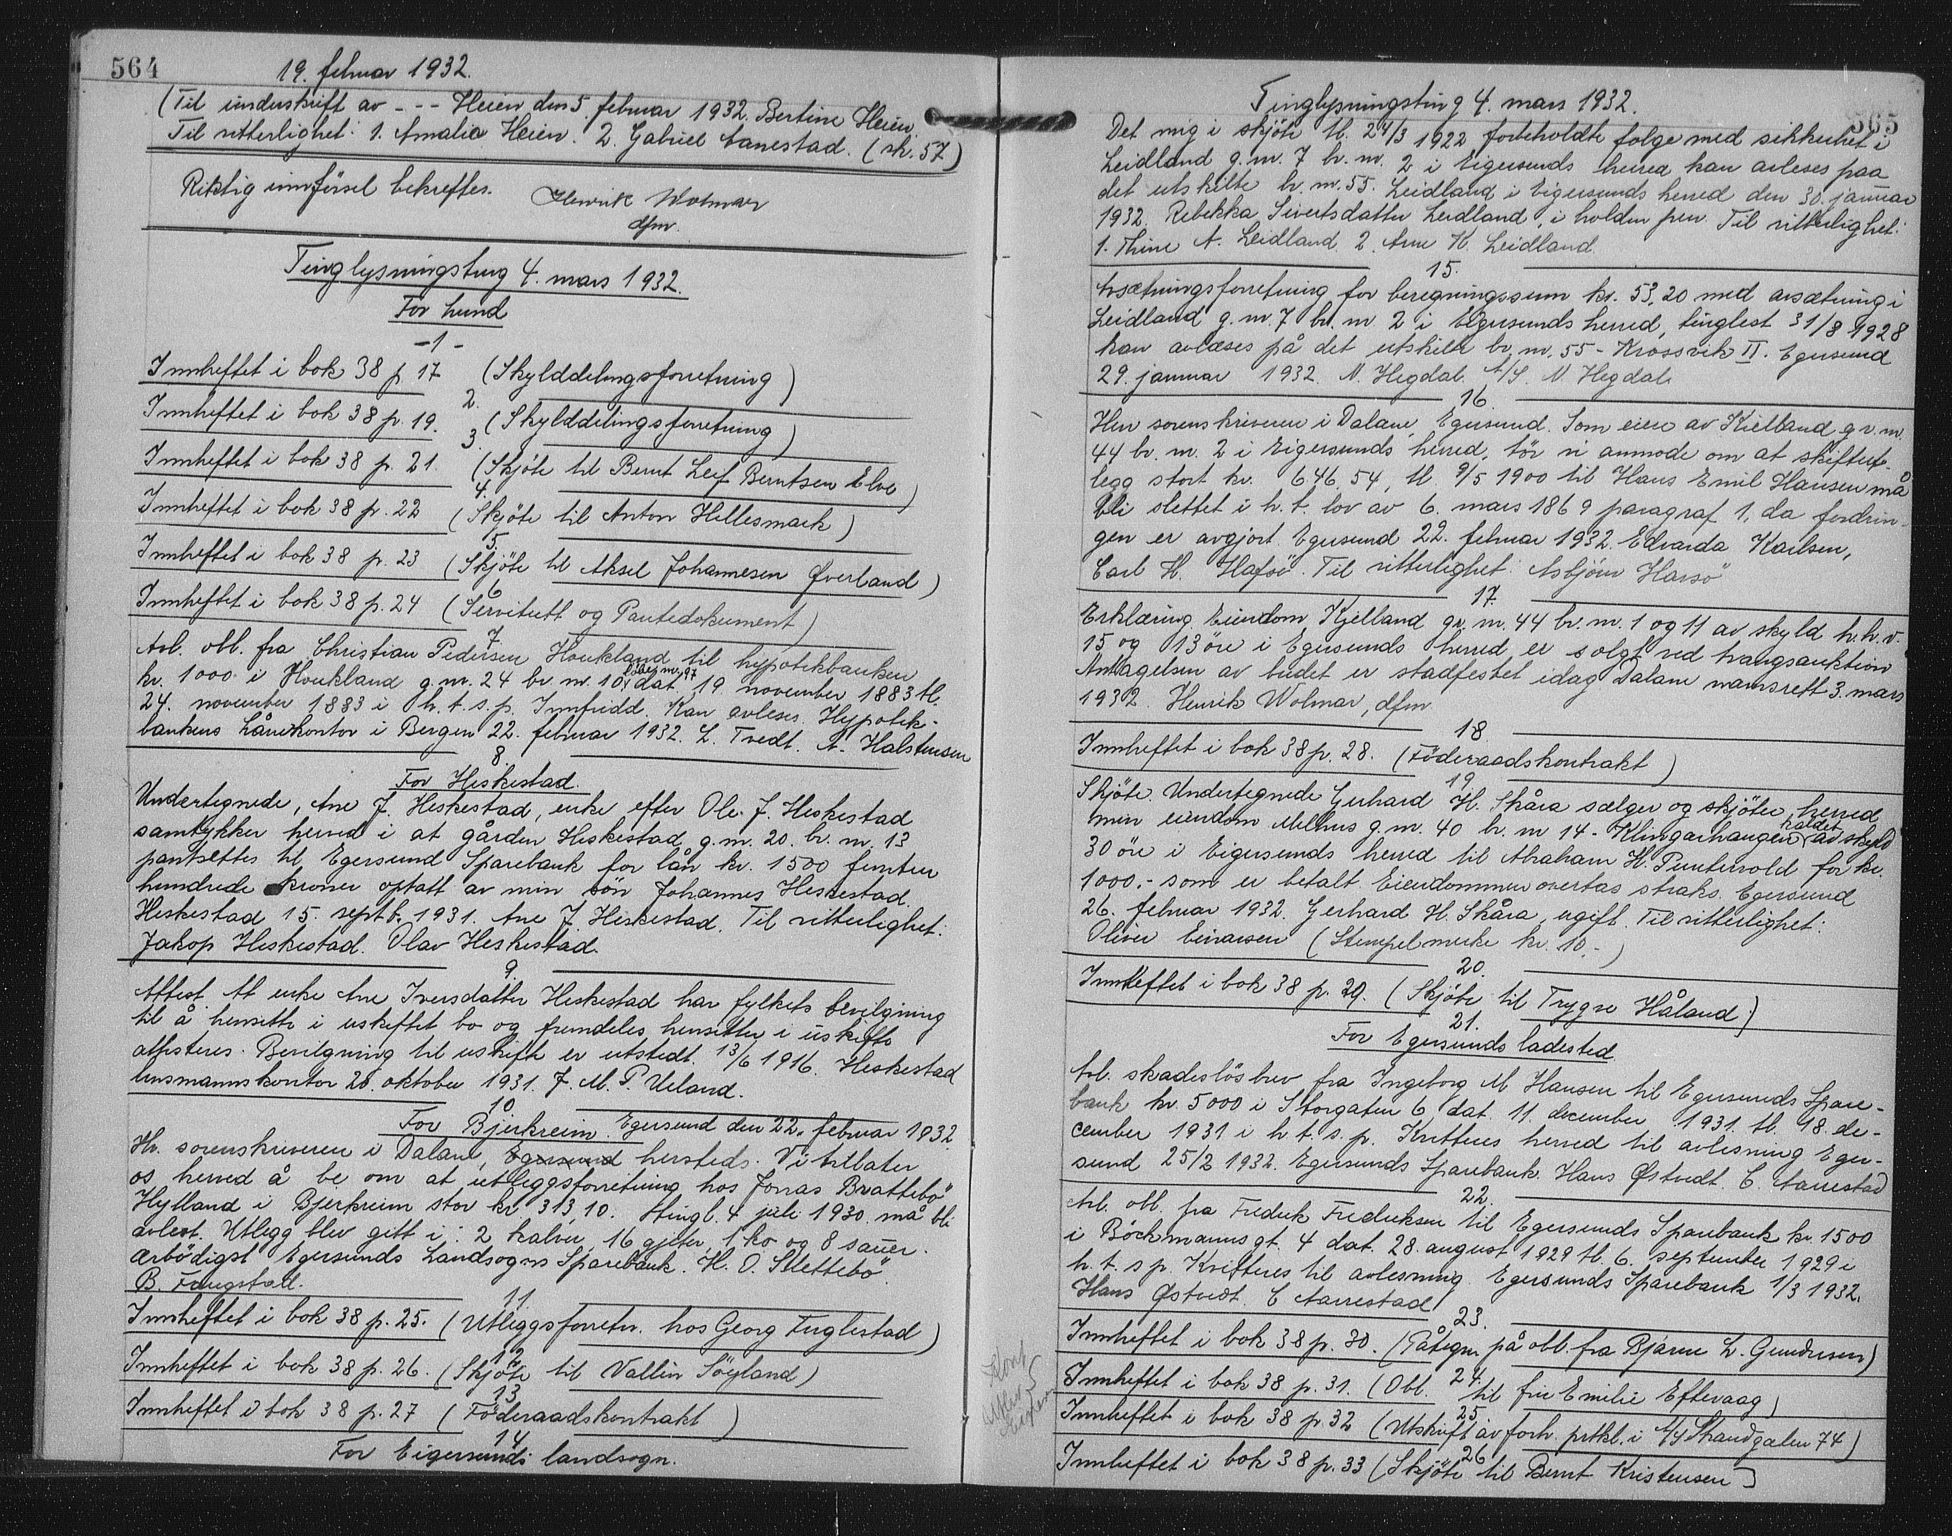 564
19. februar 1932.
(Til underskrift av - - - Heien den 5. februar 1932. Bertine Heien.
Til vitterlighet: 1. Amalia Heien. 2. Gabriel Aanestad. (rk. 57)
Riktig innförsel bekreftes. Henrik Wolmar
dfm.
Tinglysningsting 4. mars 1932.
For Lund
-1-
Innheftet i bok 38 p 17 (Skylddelingsforretning)
2.
Innheftet i bok 38 p. 19. (Skylddelingsforretning)
3
Innheftet i bok 38 p. 21. (Skjöte til Bernt Leif Berntsen Elve)
4.
Innheftet i bok 38 p. 22 (Skjöte til Anton Hellesmark)
5.
Innheftet i bok 38 p. 23 (Skjöte til Aksel Johannesen Øverland)
6
Innheftet i bok 38 p. 24 (Servitutt og Pantedokument)
7.
Avl. obl. fra Christian Pedersen Houkland til hypotekbanken
kr. 1000 i Houkland g.nr. 24 br. nr. 10, dat. 19 november 1883 tl.
24. november 1883 i h. t. s. p. Innfridd. Kan avleses. Hypotek-
bankens Lånekontor i Bergen 22. februar 1932. L. Tvedt. A. Halstensen
8.
For Heskestad.
Undertegnede, Ane J. Heskestad, enke efter Ole J. Heskestad
samtykker herved i at gården Heskestad g.nr. 20. br. nr. 13
pantsettes til Egersund Sparebank for lån kr. 1500 femten
hundrede kroner optatt av min sön Johannes Heskestad.
Heskestad 15. septb. 1931. Ane J. Heskestad. Til vitterlighet:
Jakop Heskestad. Olav Heskestad.
9.
Attest. At enke Ane Iversdatter Heskestad har fylkets bevilgning
til å hensitte i uskiftet bo og fremdeles hensitter i uskifte
attesteres. Bevilgning til uskifte er utstedt 13/6 1916. Heskestad
lensmannskontor 20. oktober 1931. J. M. P. Ueland.
10
For Bjerkreim. Egersund den 22. februar 1932.
Hr. sorenskriveren i Dalane, Egersund hersteds. Vi tillater
os herved å be om at utleggsforretning hos Jonas Brattebö
Hylland i Bjerkreim stor kr. 313.10. tingl. 4 juli 1930. må bli
avlest. Utlegg blev gitt i: 2 kalver, 16 gjeter, 1 ko og 8 sauer.
Ærbödigst Egersunds Landsogns Sparebank. H. O. Slettebö.
B. Faugstad.
11.
Innheftet i bok 38 p. 25. (Utleggsforretn. hos Georg Fuglestad)
12
Innheftet i bok 38 p. 26. (Skjöte til Vallin Söyland)
13
Innheftet i bok 38 p. 27 (Föderaadskontrakt)
14
For Eigersunds landsogn.
Tinglysningsting 4. mars 1932.
565
Det mig i skjöte tl. 24/3 1922 forbeholdte folge med sikkerhet i
Leidland g.nr. 7 br. nr. 2 i Eigersunds herred kan avleses paa
det utskilte br. nr. 55. Leidland i Eigersunds herred den 30. januar
1932. Rebekka Sivertsdatter Leidland, i holden pen. Til vitterlighet:
1. Thine A. Leidland. 2. Arne K. Leidland.
15.
Avsetningsforretning for beregningssum kr. 53,20 med avsetning i
Leidland g.nr. 7 br. nr 2 i Eigersunds herred, tinglest 31/8 1928
kan avleses på det utskilte br. nr. 55 - Krossvik II. Egersund
29. januar 1932. N. Hegdal A/S. N. Hegdal.
16
Herr sorenskriveren i Dalane, Egersund. Som eiere av Kielland g.nr.
44 br. nr. 2 i Eigersunds herred, tör vi anmode om at skifteut-
legg stort kr. 646,54, tl. 9/5 1900 til Hans Emil Hansen må
bli slettet i h.t. lov av 6. mars 1869 paragraf 1, da fordrin-
gen er avgjort. Egersund 22. februar 1932. Edvarda Karlsen,
Carl H. Hafsö. Til vitterlighet: Asbjörn Havsö
17.
Erklæring. Eiendom Kjelland gr. nr. 44 br. nr. 1 og 11 av skyld h.h.v.
15 og 13 öre i Egersunds herred, er solgt ved tvangsauktion
Antagelsen av budet er stadfestet idag. Dalane namsrett 3. mars
1932. Henrik Wolmar, dfm
18
Innheftet i bok 38 p. 28. (Föderaadskontrakt)
19.
Skjöte. Undertegnede Gerhard H. Skåra sælger og skjöter herved
min eiendom Melhus g.nr. 40 br. nr 14 - Klungarhaugen kaldet av skyld
30 öre i Eigersunds herred til Abraham H. Puntervold for kr.
1000.- som er betalt. Eiendommen overtas straks. Egersund
26. februar 1932. Gerhard H. Skåra, ugift. Til vitterlighet:
Oliver Einarsen (Stempelmerke kr. 10.-)
20.
Innheftet i bok 38 p. 29. (Skjöte til Trygve Håland)
21.
For Egersunds ladested
Avl. skadeslösbrev fra Ingeborg M Hansen til Egersunds Spare-
bank kr. 5000 i Storgaten 6 dat. 11. december 1931. tl. 18. de-
cember 1931 i h t. s. p. Kvitteres herved til avlesning Eger-
sund 25/2 1932. Egersunds Sparebank. Hans Østvedt. C. Aarrestad
22.
Avl. obl. fra Fredrik Fredriksen til Egersunds Sparebank kr. 1500
i Böckmannsgt. 4 dat. 28. august 1929 tl. 6. september 1929 i
h. t. s p. Kvitteres til avlesning. Egersunds Sparebank 1/3 1932.
Hans Østvedt. C Aarrestad
23.
Innheftet i bok 38 p. 30. (Påtegn. på obl. fra Bjarne L. Gundersen)
24.
Innheftet i bok 38 p. 31. (Obl. til fru Emilie Eftevaag)
25
Innheftet i bok 38 p. 32 (Utskrift av forh. prtkl. i A/S Strandgaten 74)
26
Innheftet i bok 38 p. 33 (Skjöte til Bernt Kristensen)